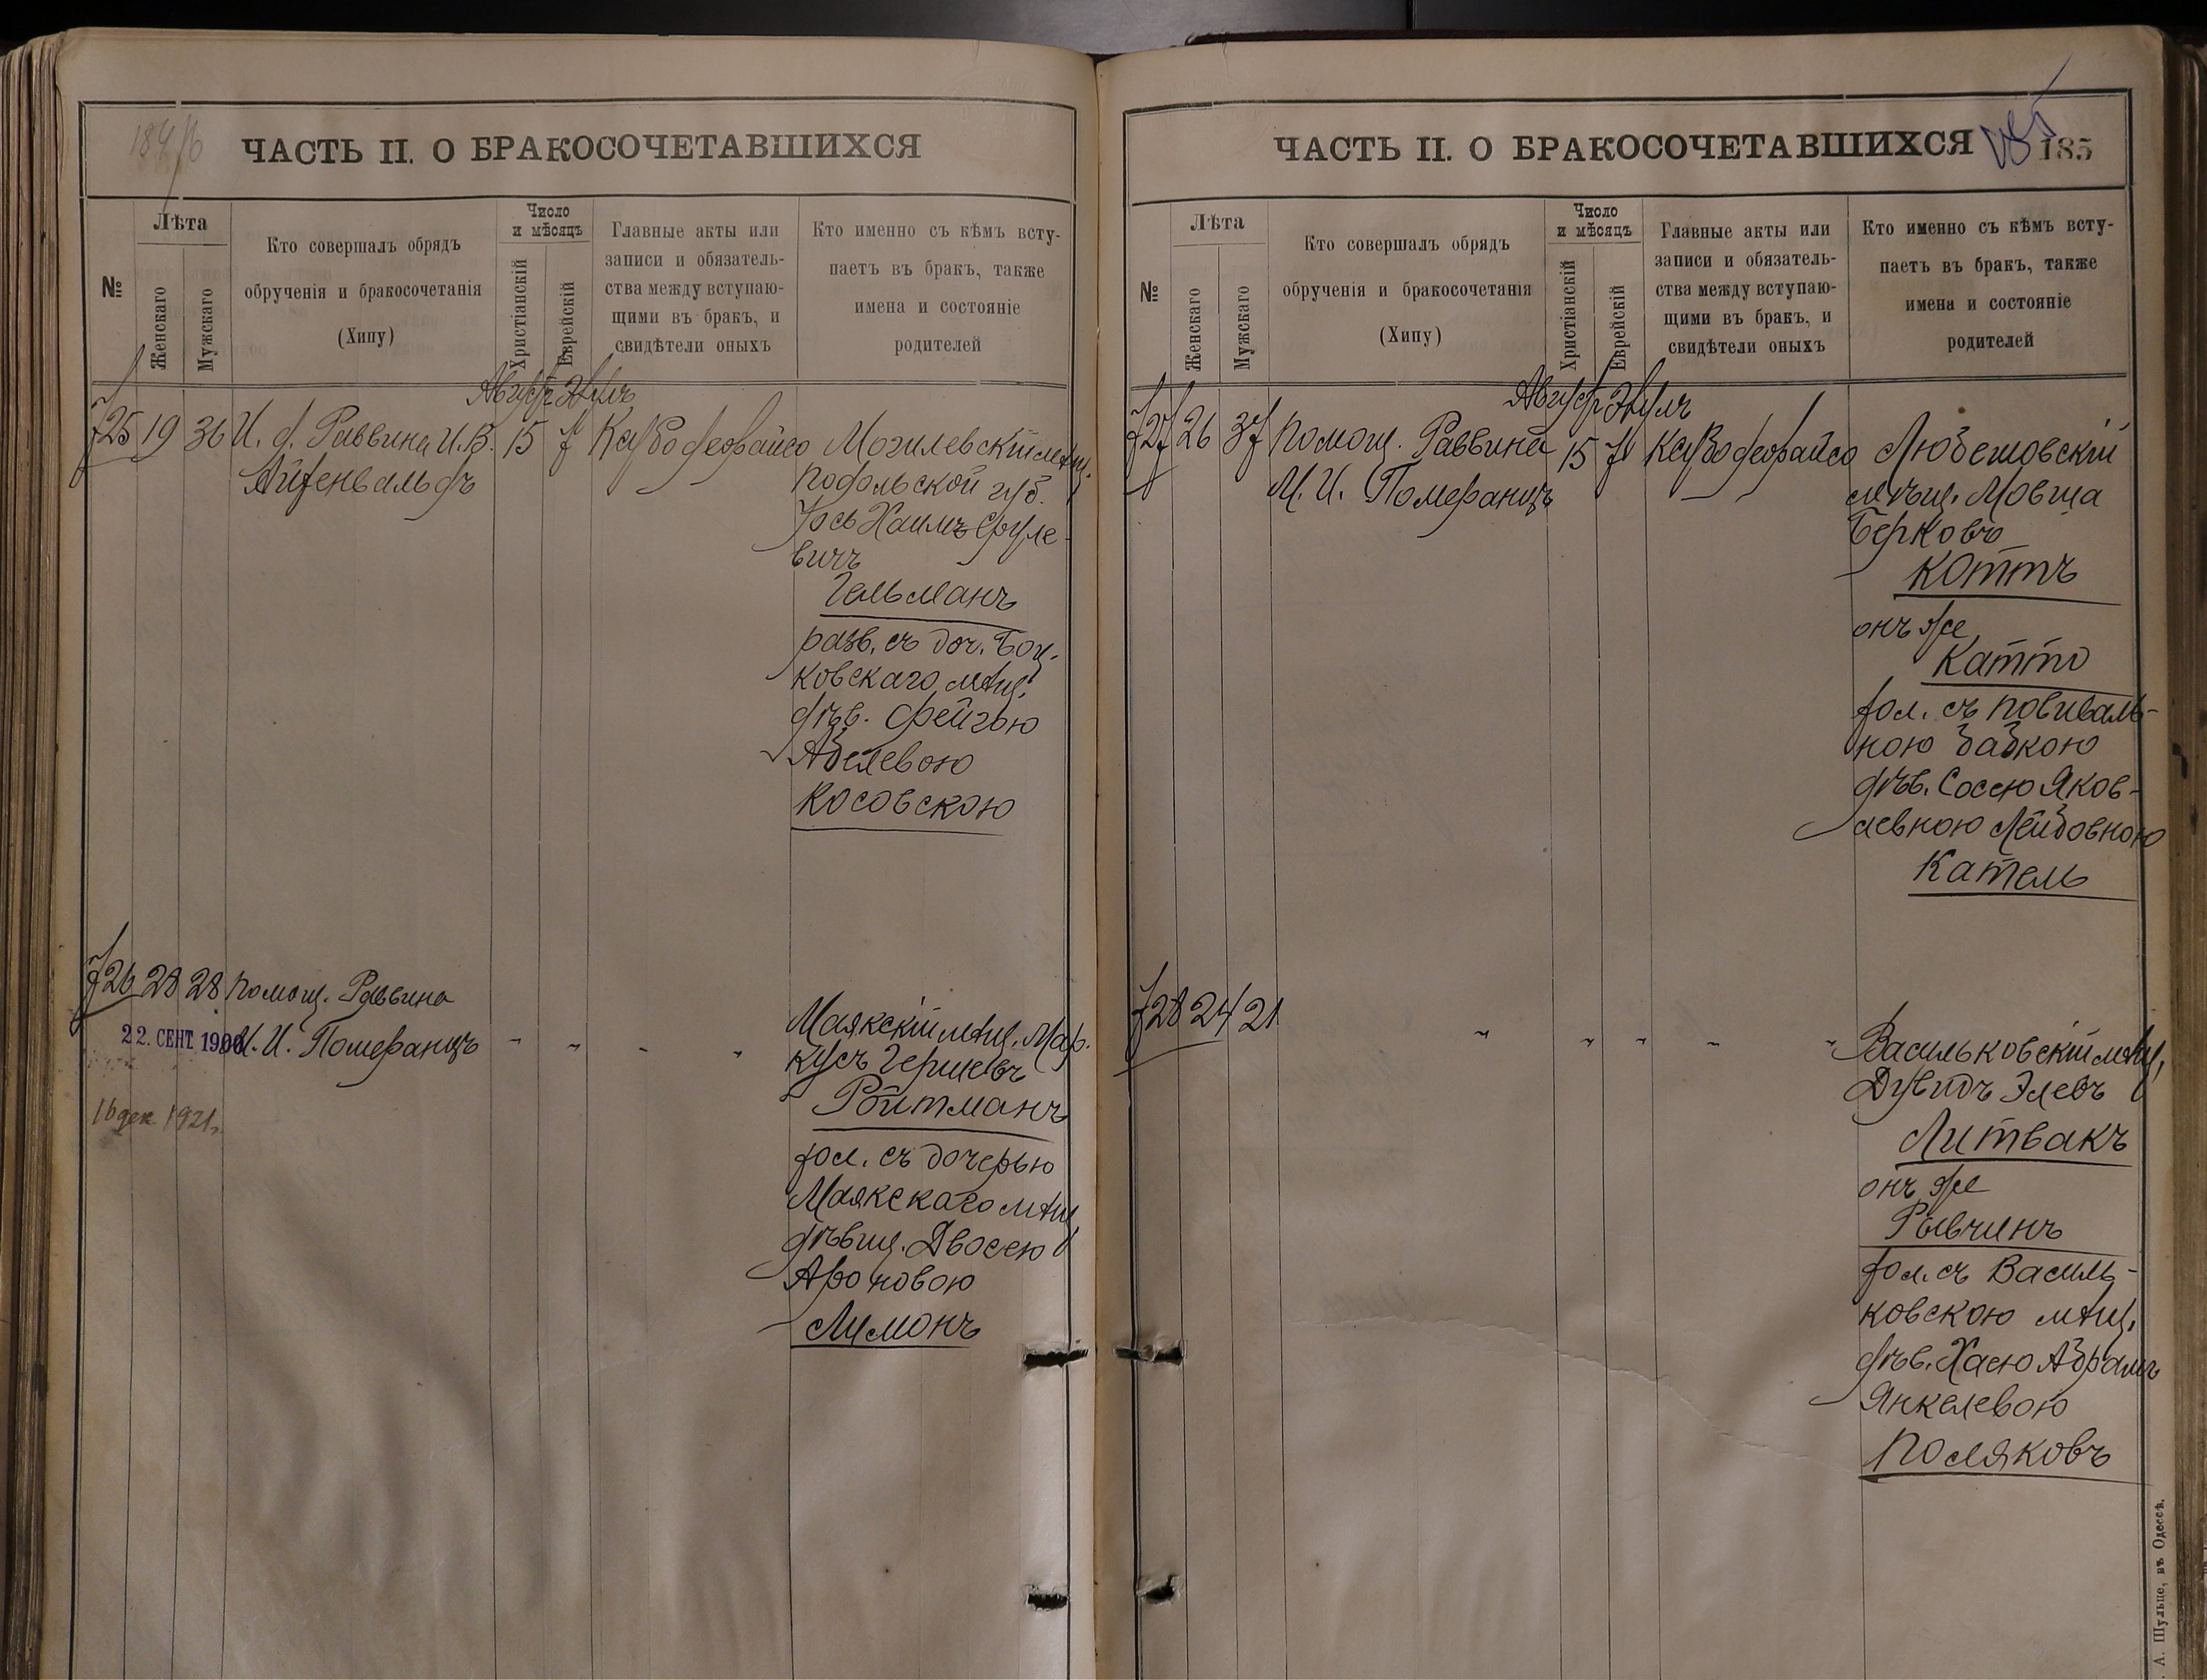 184/б
ЧАСТЬ II. О БРАКОСОЧЕТАВШИХСЯ
№
Лѣта
Женскаго
Мужскаго
Кто совершалъ обрядъ
обрученія и бракосочетанія
(Хипу)
Число
и мѣсяцъ
Христіанскій
Еврейскій
Главные акты или
записи и обязатель-
ства между вступаю-
щими въ бракъ, и
свидѣтели оныхъ
Кто именно съ кѣмъ всту-
паетъ въ бракъ, также
имена и состояніе
родителей
Август Элулъ
725 19 36 И. д. Раввина И. В. 15 7 Могилевскій мѣщ.
Айзенвальдъ
Подольской губ.
Іось Хаимъ Сруле-
вичъ
Гельманъ
разв. съ доч. Боц-
ковскаго мѣщ.
дѣв. Фейгою
Абелевою
Косовскою
726 28 28 Помощ. Раввина
22. СЕНТ. 1900 И. Померанцъ
16 дек. 1921 г.
Маякскій мѣщ. Мар-
кусъ Гершевъ
Ройтманъ
хол. съ дочерью
Маякскаго мѣщ.
дѣвиц. Двосею
Ароновою
Лимонъ
ЧАСТЬ II. О БРАКОСОЧЕТАВШИХСЯ
185
№
Лѣта
Женскаго
Мужскаго
Кто совершалъ обрядъ
обрученія и бракосочетанія
(Хипу)
Число
и мѣсяцъ
Христіанскій
Еврейскій
Главные акты или
записи и обязатель-
ства между вступаю-
щими въ бракъ, и
свидѣтели оныхъ
Кто именно съ кѣмъ всту-
паетъ въ бракъ, также
имена и состояніе
родителей
Август Элулъ
727 26 37 Помощ. Раввина 15 7 Любешовскій
М. И. Померанцъ
мѣщ. Мовша
Берковъ
Коттъ
онъ же
Катто
хол. съ повиваль-
ною бабкою
дѣв. Соссю Яков-
левною Лейбовною
Катель
728 24 21 " " " " "
Васильковскій мѣщ.
Дувидъ Элевъ
Литвакъ
онъ же
Рывчинъ
хол. съ Василь-
ковскою мѣщ.
дѣв. Хасю Абрамъ
Янкелевою
Поляковъ
А. Шульце, въ Одессѣ.